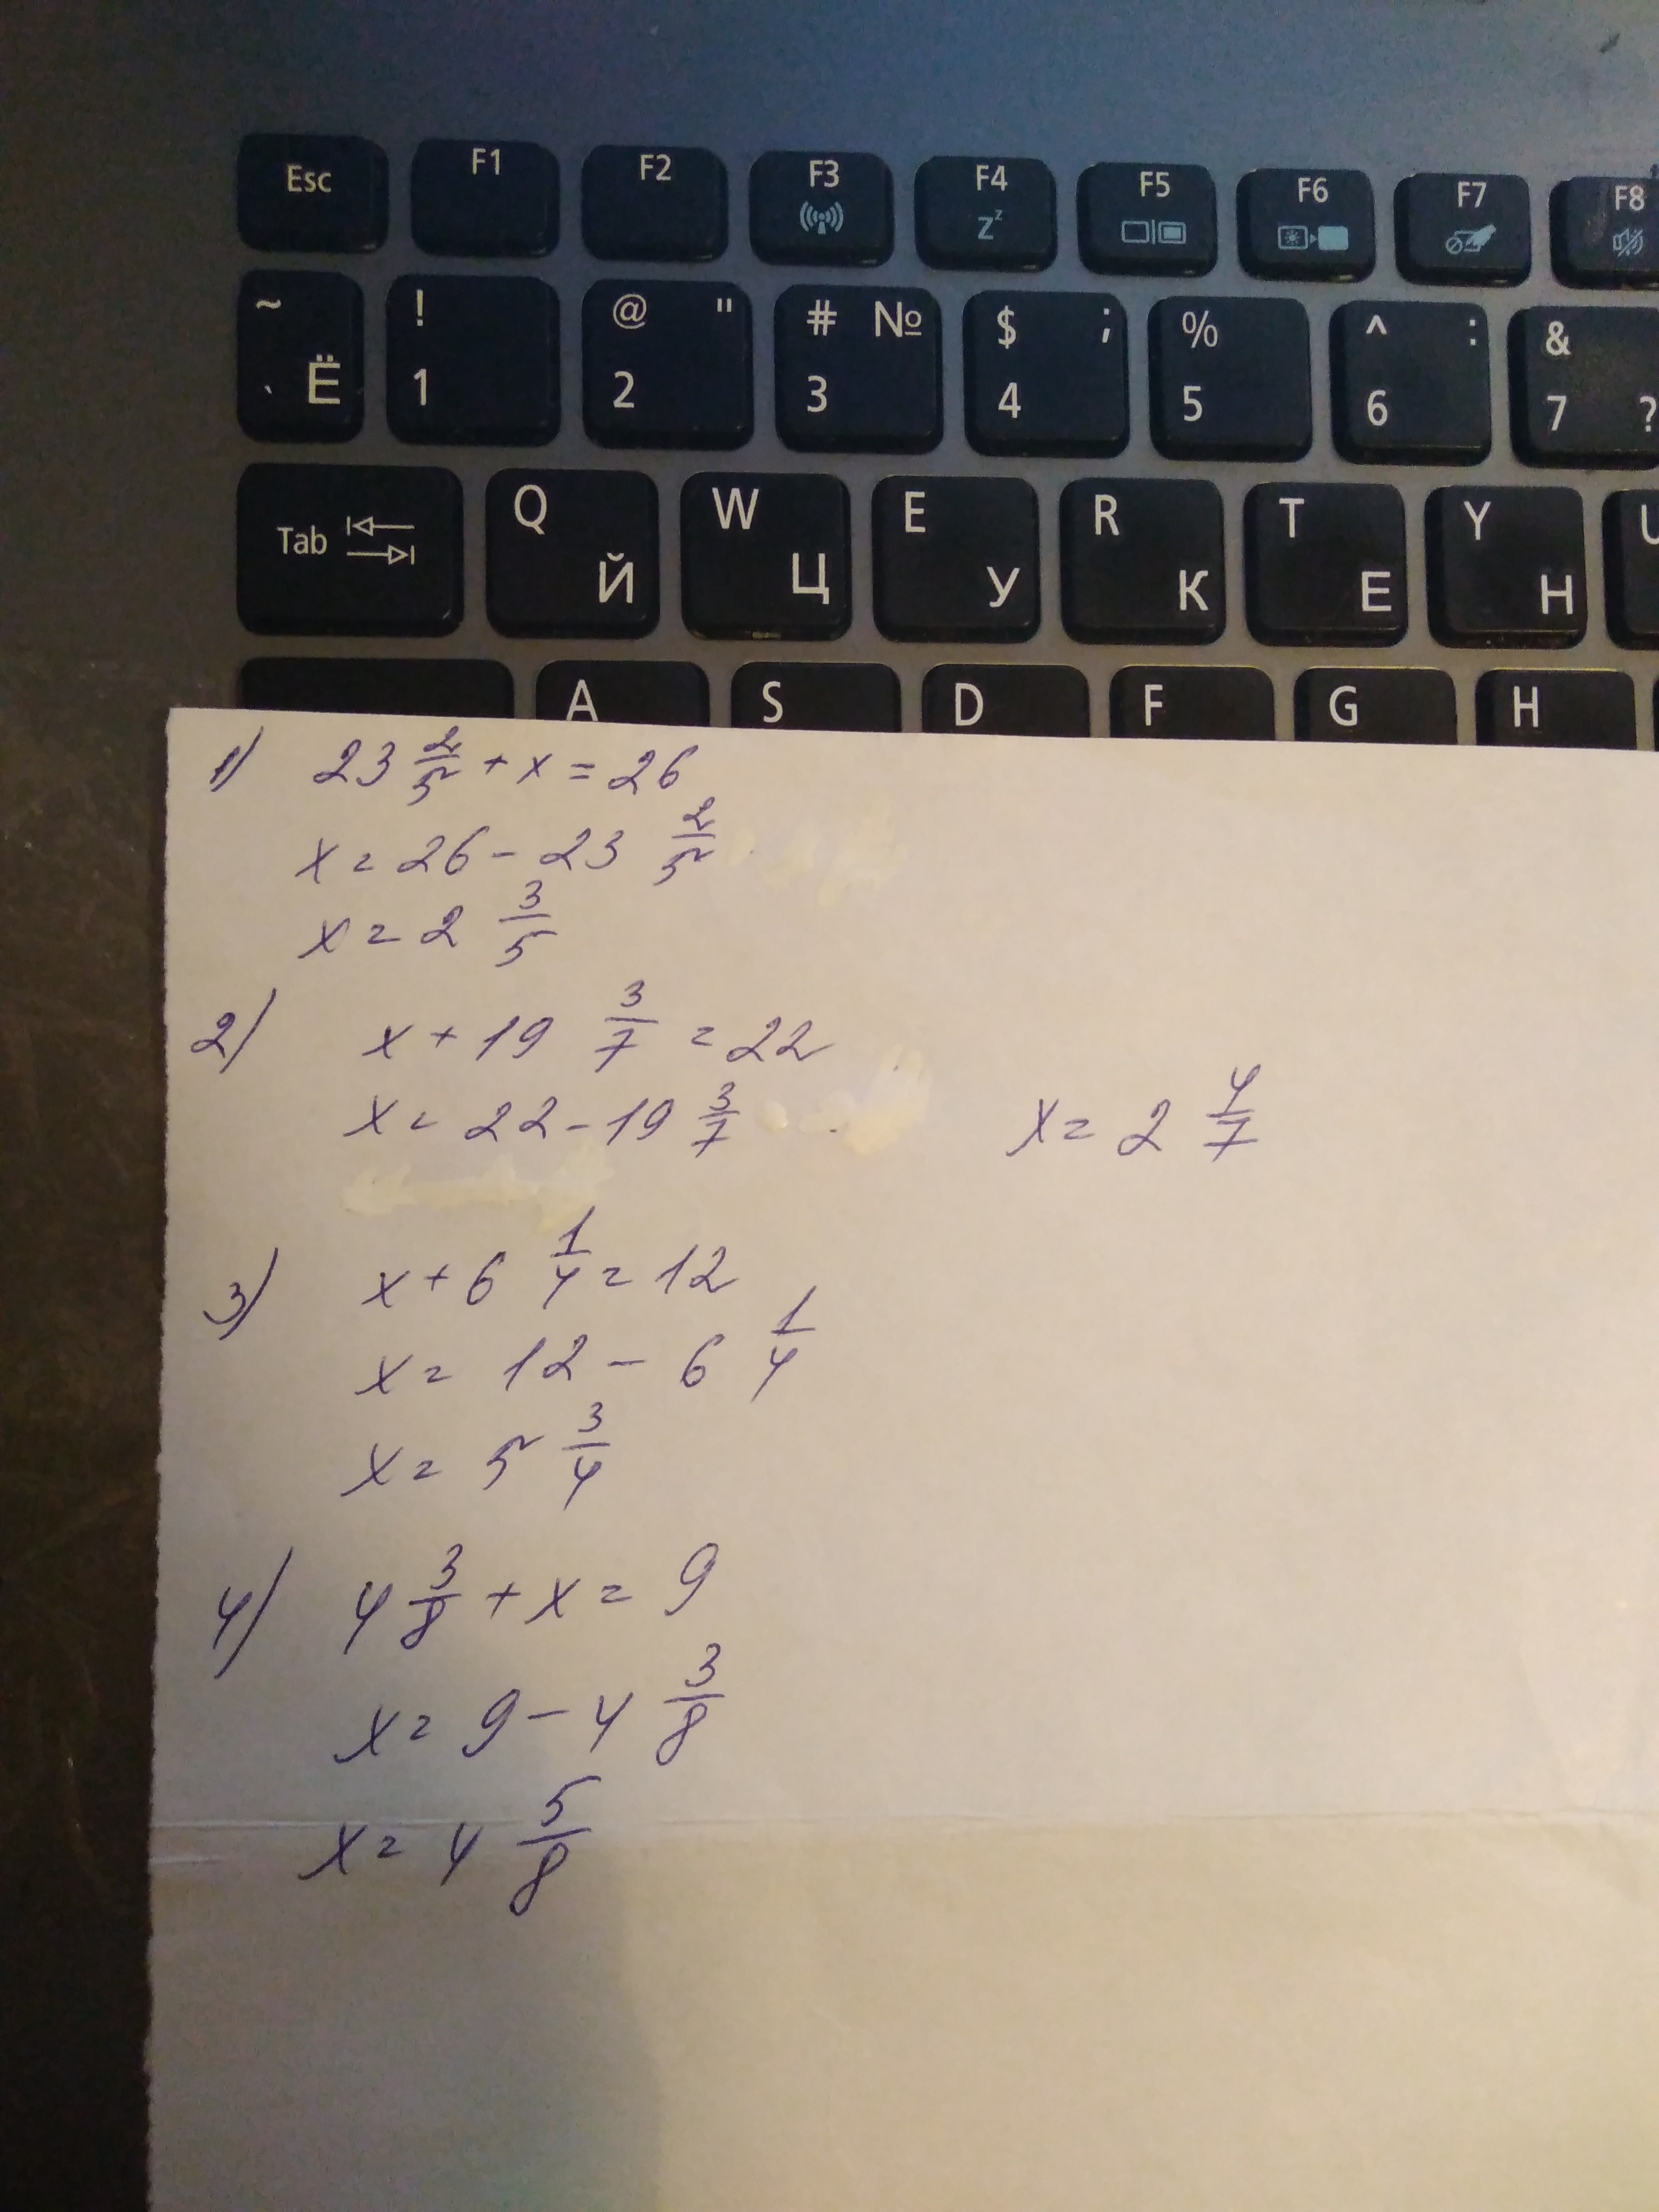 Esc F1 F2 F3 F4 Zz F5 F6 F7 F8
~ ` Ё ! 1 @ " 2 # № 3 $ ; 4 % 5 ^ : 6 & 7 ?
Tab Q Й W Ц E У R К T Е Y Н U
A S D F G H
1) 23 2/5 + x = 26
x = 26 - 23 2/5
x = 2 3/5
2) x + 19 3/7 = 22
x = 22 - 19 3/7 x = 2 4/7
3) x + 6 1/4 = 12
x = 12 - 6 1/4
x = 5 3/4
4) 4 3/8 + x = 9
x = 9 - 4 3/8
x = 4 5/8